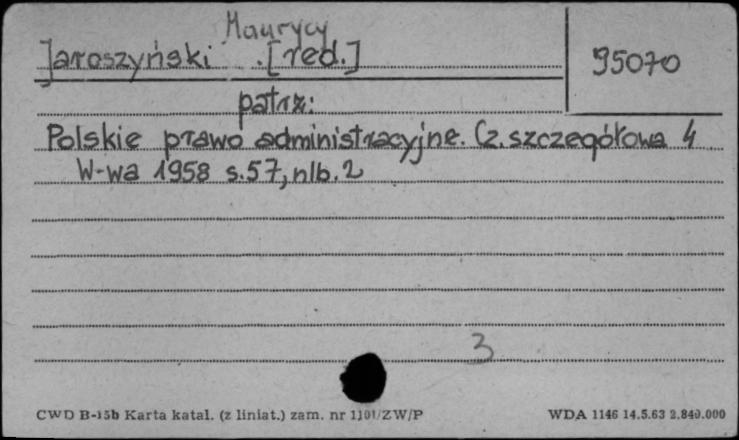 Maurycy
Jaroszyński . [red.]
95070
patrz:
Polskie prawo administracyjne. Cz. szczegółowa 4
W-wa 1958 s.57, nlb. 2
3
CWD B-15b Karta katal. (z liniat.) zam. nr 1101/ZW/P
WDA 1146 14.5.63 2.840.000